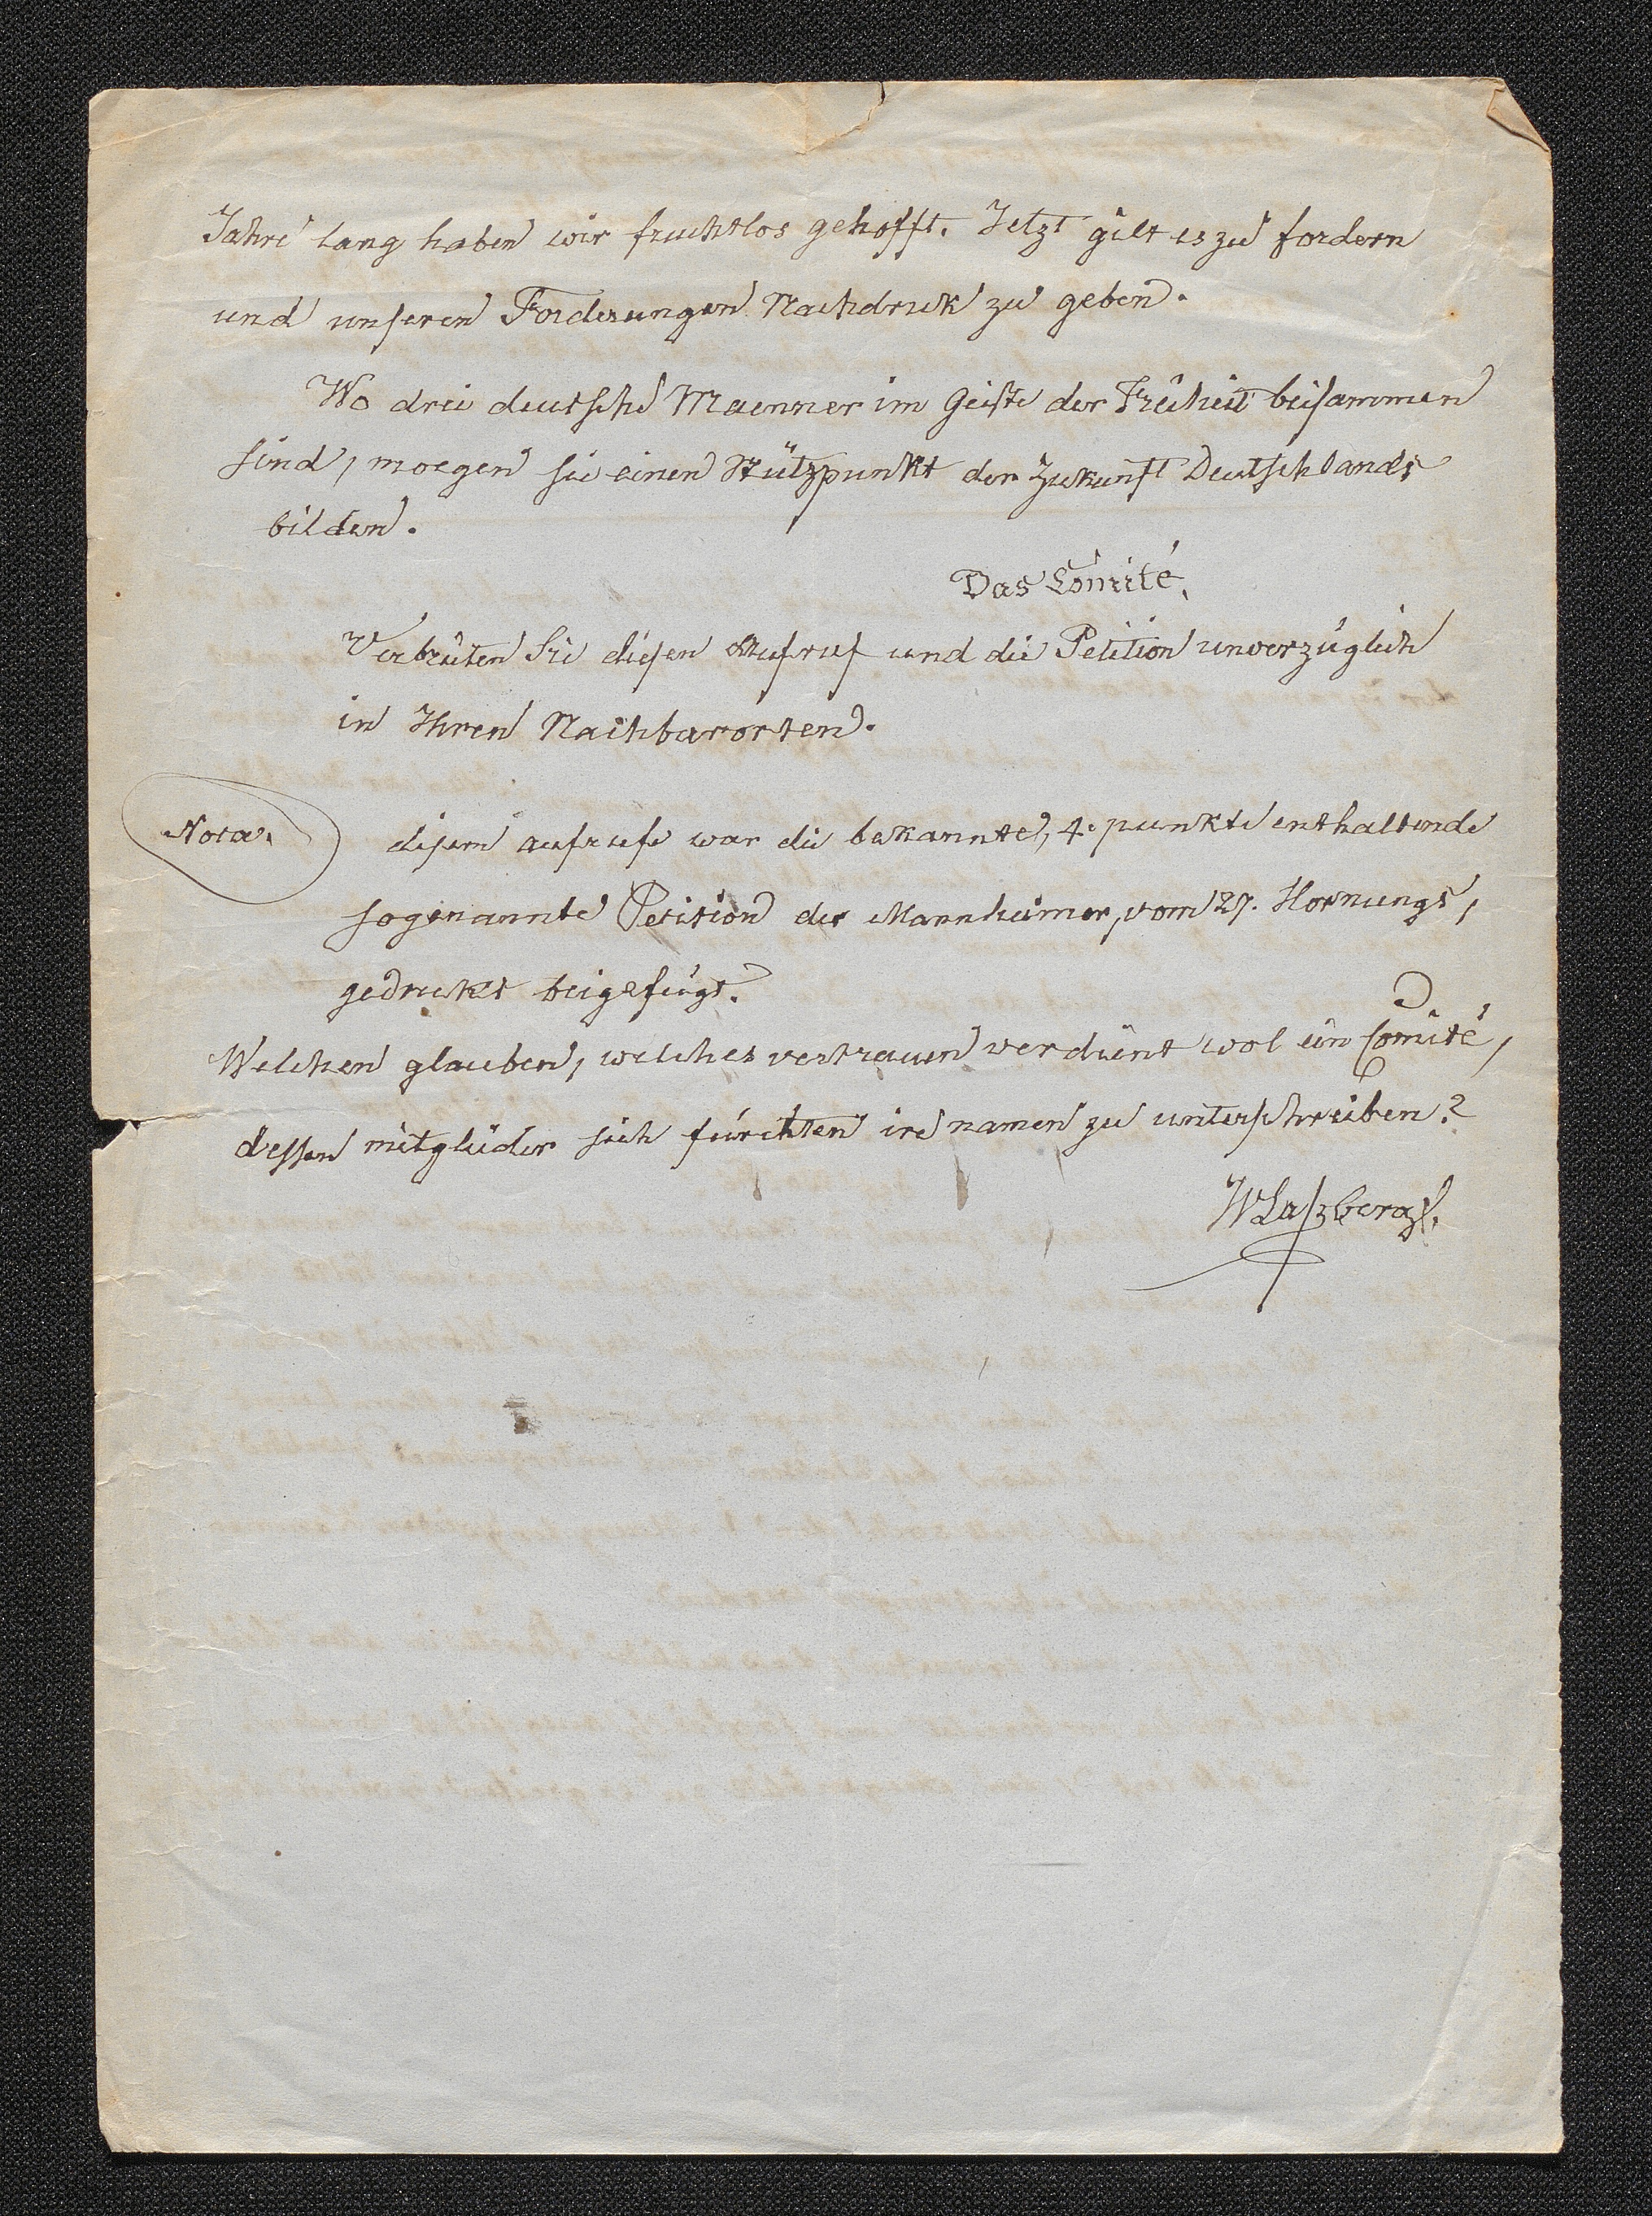 Jahre lang haben wir fruchtlos gehofft. Jetzt gilt es zu fordern
und unseren Forderungen Nachdruck zu geben.
Wo drei deutsche Maenner im Geiste der Freiheit beisammen
sind, moegen sie einen Stützpunkt der Zukunft Deutschlands
bilden.
Das Comité.
Verbreiten Sie diesen Aufruf und die Petition unverzüglich
in Ihren Nachbarorten.
Nota. disem aufrufe war die bekannte, 4. punkte enthaltende
sogenannte Petition der Mannheimer, vom 27. Hornungs,
gedruckt beigefügt.
Welchen glauben, welches vertrauen verdient wol ein Comité,
dessen mitglieder sich fürchten ire namen zu unterschreiben?
JvLaszberg.